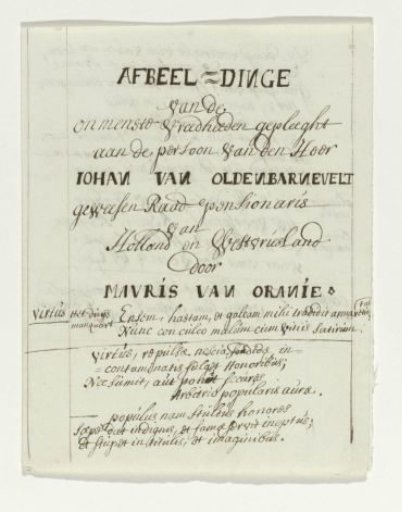 AFBEEL=DINGE
van de
onmensto Vreedheeden gepleeght
aan de persoon van den Heer
IOHAN VAN OLDENBARNEVELT
geweesen Raad pensionaris
van
Holland en Westvriesland
door
MAVRIS VAN ORANIE.
Virtus Ensem, hastam, et galeam mihi tradidit
Nunc conculco malum cum vitiis
Virtus, repulsæ nescia sordidæ in-
=contaminatis fulget Honoribus;
Nec sumit, aut ponit secures
Arbitrio popularis auræ.
populus nam stultus honores
Sæpe dat indignis, et famæ servit ineptus;
et stupet in titulis, et imaginibus.